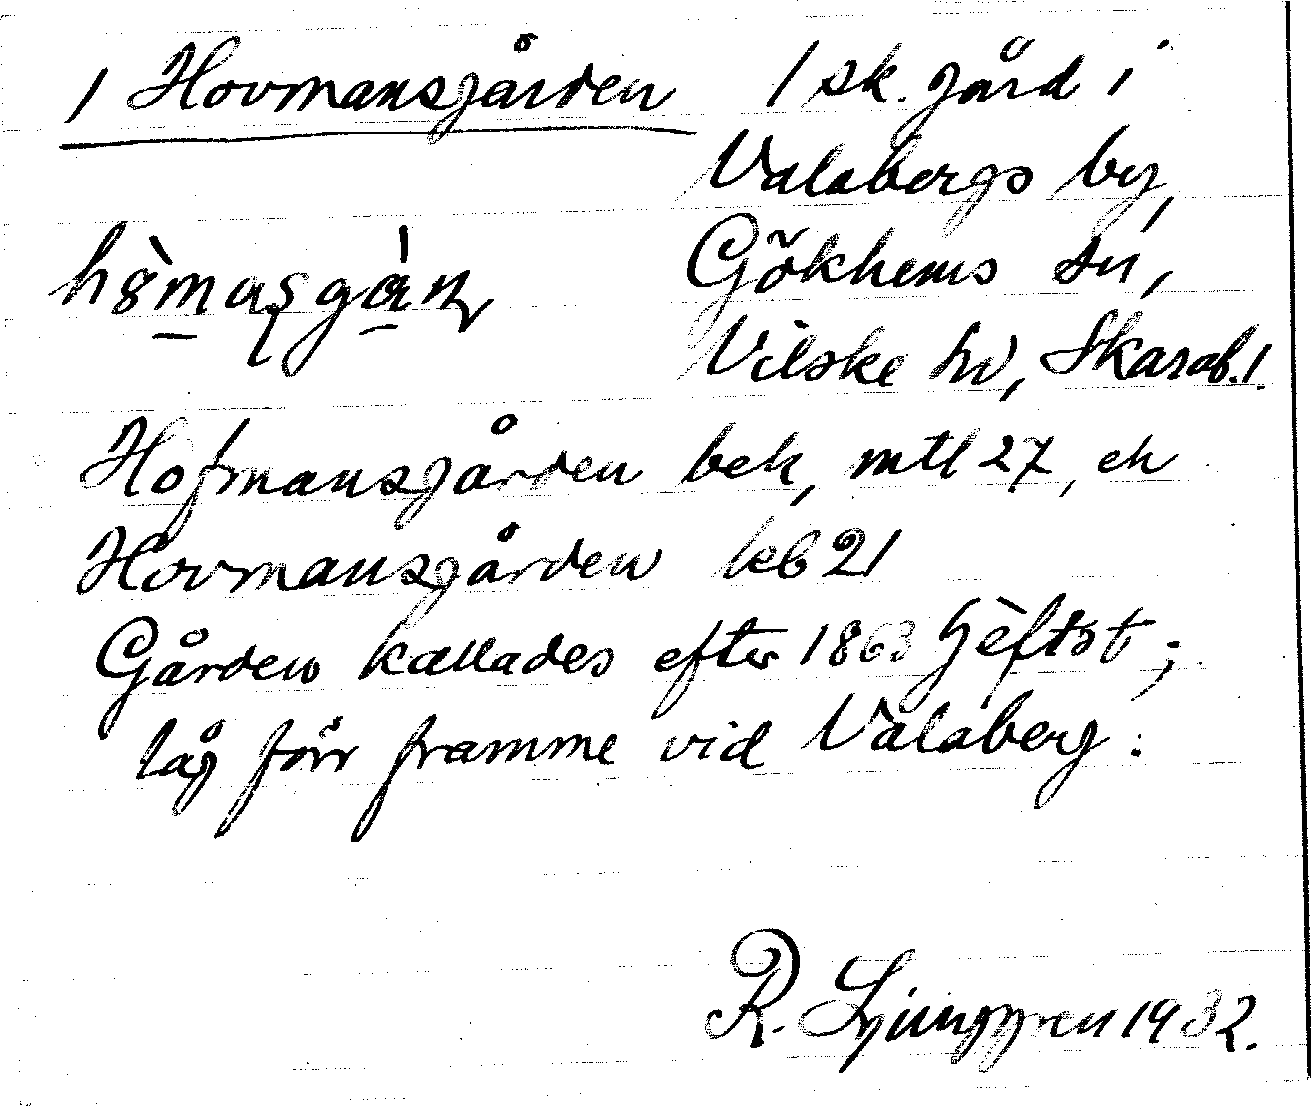 1 Hovmansgården
1 sk. gård i
Valabergs by,
Gökhems sn,
Vilske hd, Skarab. l.
Hofmansgården bek, mtl 27, ek
Hovmansgården keb 21
Gården kallades efter 1863
låg förr framme vid Valaberg.
R. Ljunggren 1932.